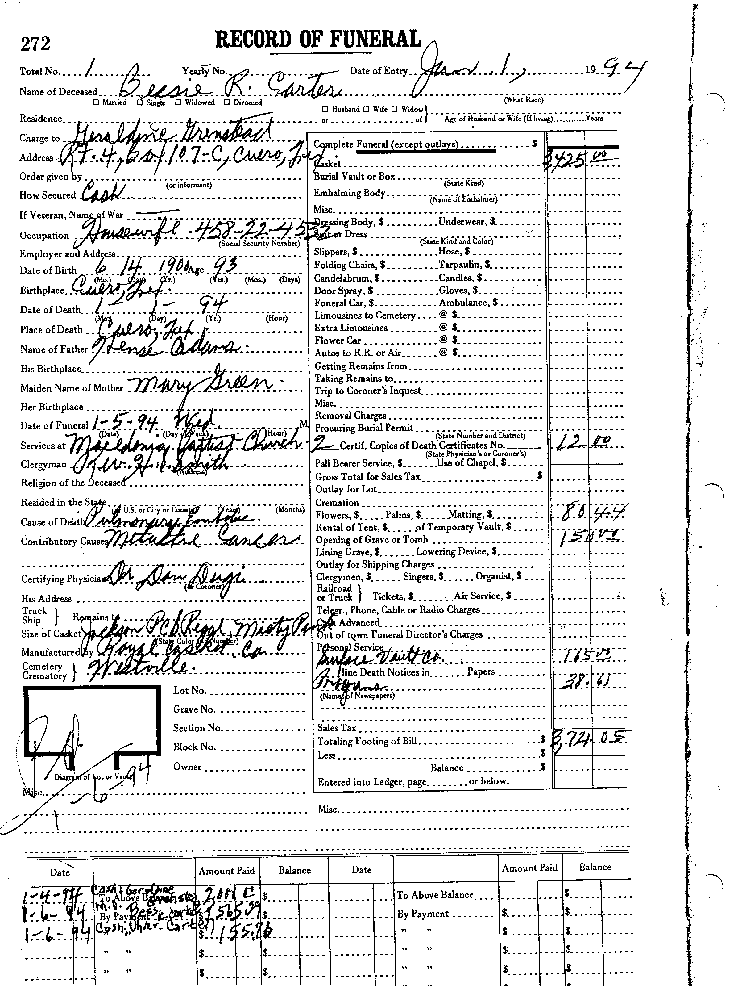 272
RECORD OF FUNERAL
Total No. 1 Yearly No. Date of Entry Jan 1, 1994
Name of Deceased Bessie R. Carter
☐ Married ☐ Single ☐ Widowed ☐ Divorced (What Race)
Residence ☐ Husband ☐ Wife ☐ Widow or of Age of Husband or Wife (If living) Years
Charge to Geraldine Grenstead
Address Rt. 4, Box 107-C, Cuero, Tex
Order given by (or informant)
How Secured Cash
If Veteran, Name of War
Occupation Housewife 458-22-45
(Social Security Number)
Employer and Address
Date of Birth 6 14 1900 Age 93
(Mo.) (Day) (Yr.) (Yrs.) (Mos.) (Days)
Birthplace Cuero, Tex.
Date of Death 1 - 1 - 94
(Mo.) (Day) (Yr.) (Hour)
Place of Death Cuero, Tex.
Name of Father Adams
His Birthplace
Maiden Name of Mother Mary Green
Her Birthplace
Date of Funeral 1-5-94 Wed. M.
(Date) (Day of Week) (Hour)
Services at Macedonia Baptist Church
Clergyman Rev. H. Smith
Religion of the Deceased
Resided in the State
(U.S. or City or County) (Years) (Months)
Cause of Death Pulmonary
Contributory Causes Cancer
Certifying Physician Dr. Dan Dugi
(or Coroner)
His Address
Truck Ship } Remains to
Size of Casket Jackson Regal, Misty
(State Color and Number)
Manufactured by Royal Casket Co.
Cemetery Crematory } Westville
Lot No.
Grave No.
Section No.
Block No.
Owner
Diagram of Lot or Vault
1-6-94
Misc.
Complete Funeral (except outlays) $
Casket 3425 00
Burial Vault or Box
(State Kind)
Embalming Body
(Name of Embalmer)
Misc.
Dressing Body, $ Underwear, $
Suit or Dress
(State Kind and Color)
Slippers, $ Hose, $
Folding Chairs, $ Tarpaulin, $
Candelabrum, $ Candles, $
Door Spray, $ Gloves, $
Funeral Car, $ Ambulance, $
Limousines to Cemetery @ $
Extra Limousines @ $
Flower Car @ $
Autos to R.R. or Air @ $
Getting Remains from
Taking Remains to
Trip to Coroner's Inquest
Misc.
Removal Charges
Procuring Burial Permit
(State Number and District)
2 Certif. Copies of Death Certificates No. 12 00
(State Physician's or Coroner's)
Pall Bearer Service, $ Use of Chapel, $
Gross Total for Sales Tax $
Outlay for Lot
Cremation
Flowers, $ Palms, $ Matting, $ 80.44
Rental of Tent, $ of Temporary Vault, $
Opening of Grave or Tomb 150 00
Lining Grave, $ Lowering Device, $
Outlay for Shipping Charges
Clergymen, $ Singers, $ Organist, $
Railroad or Truck } Tickets, $ Air Service, $
Telegr., Phone, Cable or Radio Charges
Cash Advanced
Out of town Funeral Director's Charges
Personal Service
Vault Co. 165 00
line Death Notices in Papers 38.61
(Names of Newspapers)
Sales Tax
Totaling Footing of Bill $
Less $
Balance $
Entered into Ledger, page or below.
Misc.
Date Amount Paid Balance Date Amount Paid Balance
1-4-94 Cash, Geraldine To Above Balance $ To Above Balance $
1-6-94 By Payment $ By Payment $ $
1-6-94 Cash, Carter $ 155. " " $ $
" " $ $ " " $ $
" " $ $ " " $ $